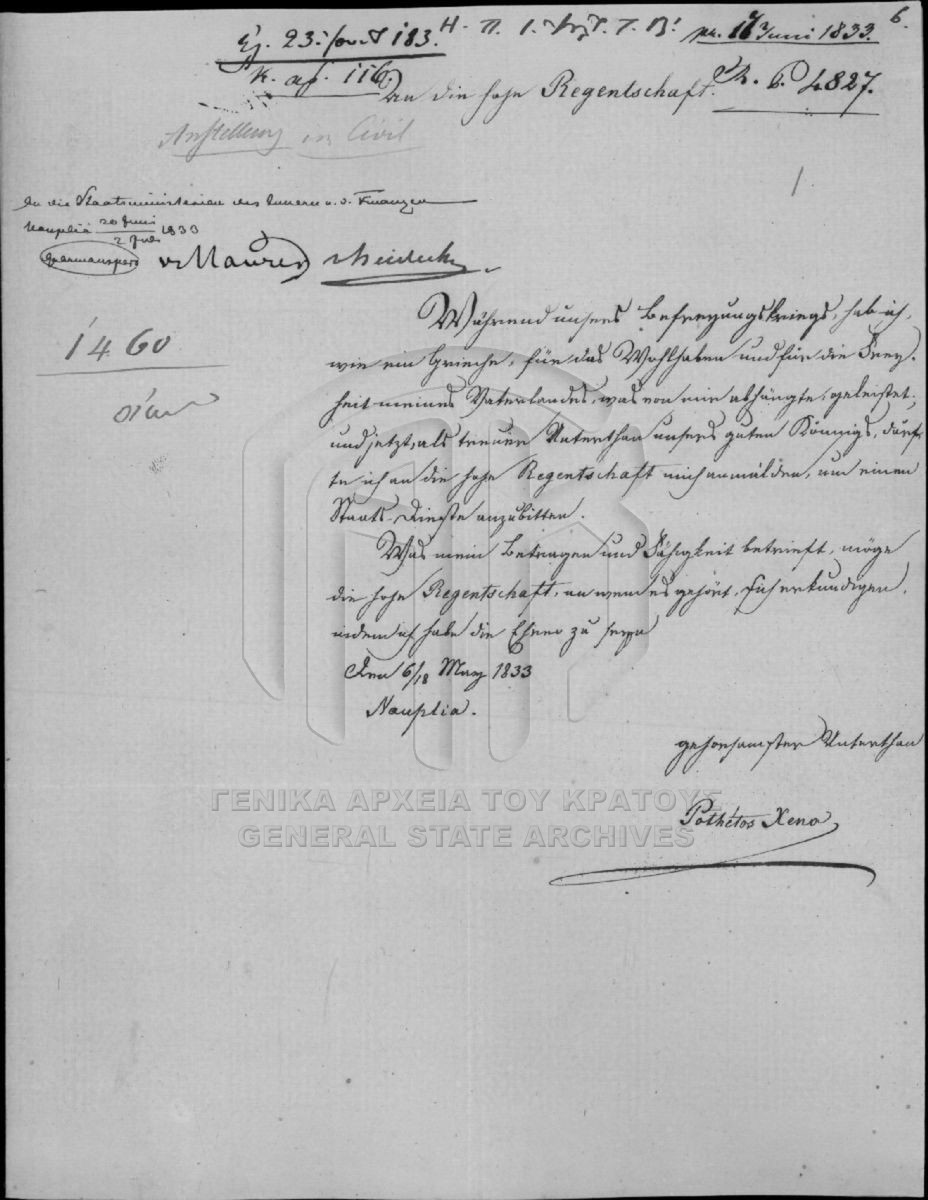 6.
Ἐλ. 23 183.
pr. 17 Juni 1833.
κ. ἀρ. 116.
R. 6. 4827.
An die hohe Regentschaft.
Anstellung im Civil
1
An die Staatsministerien des Innern u. d. Finanzen
Nauplia 20 Juni / 2 Juli 1833
Gr Armansperg v. Maurer Heideck
1460
Während unsers Befreyungskriegs, hab ich,
wie ein Grieche, für das Wohlhaben und für die Frey-
heit meines Vaterlandes, was von mir abhängte, geleistet;
und jetzt, als treuer Unterthan unsers guten Königs, dürf-
te ich an die hohe Regentschaft mich anmälden, um einen
Staats-Dienste anzubitten.
Was mein Betragen und Fähigkeit betrieft, möge
die hohe Regentschaft, an wem es gehört, sich erkundigen,
indem ich habe die Ehre zu seyn
Den 6/18 May 1833
Nauplia.
gehorsamster Unterthan
Pothétos Xeno
ΓΕΝΙΚΑ ΑΡΧΕΙΑ ΤΟΥ ΚΡΑΤΟΥΣ
GENERAL STATE ARCHIVES